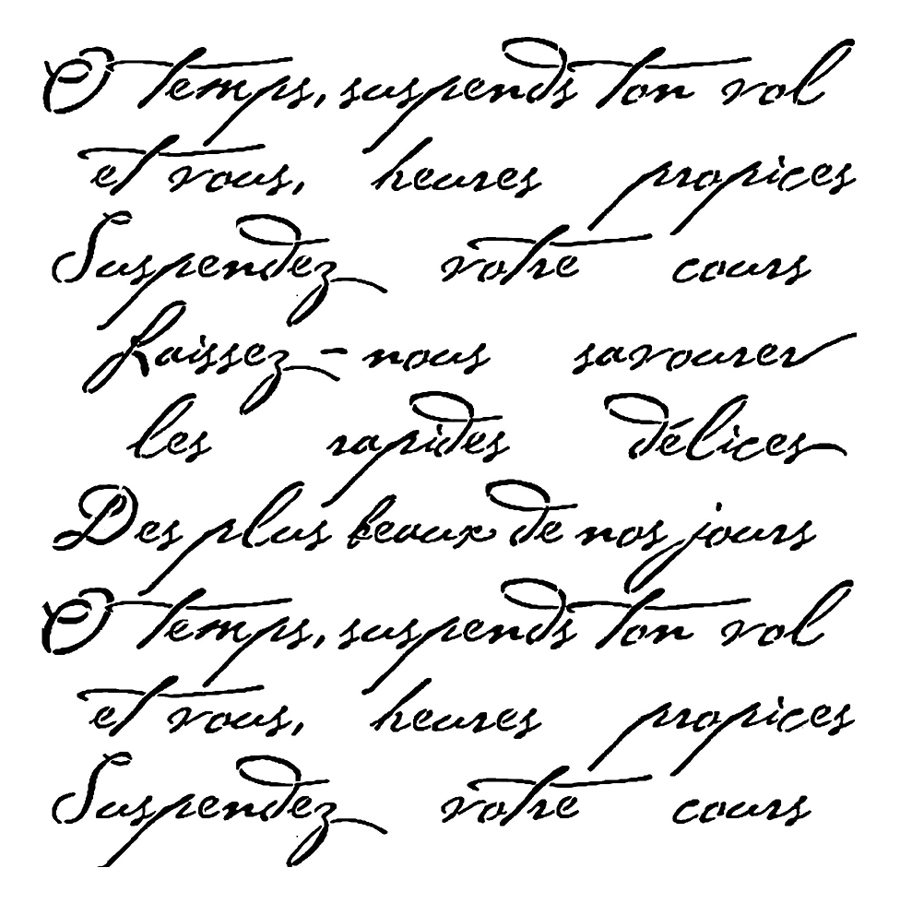 O temps, suspends ton vol
et vous, heures propices
Suspendez votre cours
Laissez-nous savourer
les rapides délices
Des plus beaux de nos jours
O temps, suspends ton vol
et vous, heures propices
Suspendez votre cours